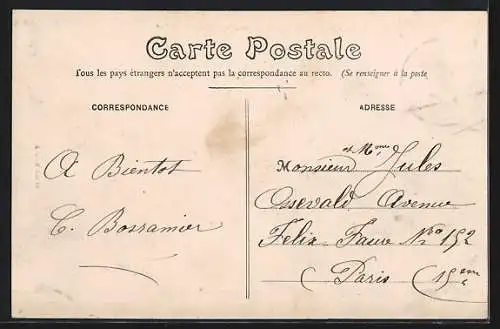 Carte Postale
Tous les pays étrangers n'acceptent pas la correspondance au recto. (Se renseigner à la poste
CORRESPONDANCE
A Bientot
C. Bossamier
ADRESSE
et Mme
Monsieur Jules
Osevald Avenue
Felix Faure No 152
( Paris (15eme